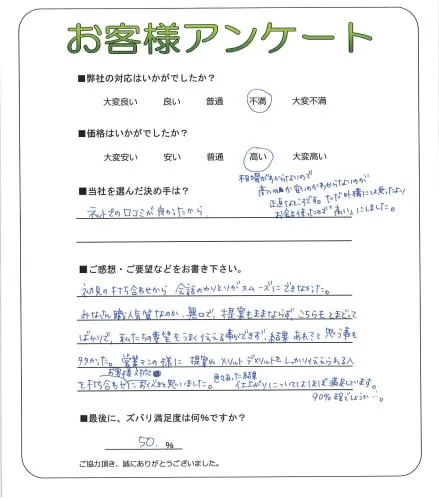 お客様アンケート
■弊社の対応はいかがでしたか?
大変良い 良い 普通 不満 大変不満
■価格はいかがでしたか?
大変安い 安い 普通 高い 大変高い
相場がわからないので
高いのか安いのかわからないのが
正直なところです。ただ外構には思ったより
お金を使ったので「高い」にしました。
■当社を選んだ決め手は?
ネットでの口コミが良かったから
■ご感想・ご要望などをお書き下さい。
初見の打ち合わせから 会話のやりとりがスムーズにできなかった。
みなさん職人気質なのか、無口で、提案もままならず、こちらもとまどって
ばかりで、私たちの要望もうまく伝える事ができず、結果 あれ?と思う事も
多かった。営業マンの様に 提案や メリットデメリットも しっかり伝えられる人
お客様対応
を打ち合せにおくべきと思いました。色々あった結果
仕上がりについてはほぼ満足しています。
90%程でしょうか…。
■最後に、ズバリ満足度は何%ですか?
50. %
ご協力頂き、誠にありがとうございました。